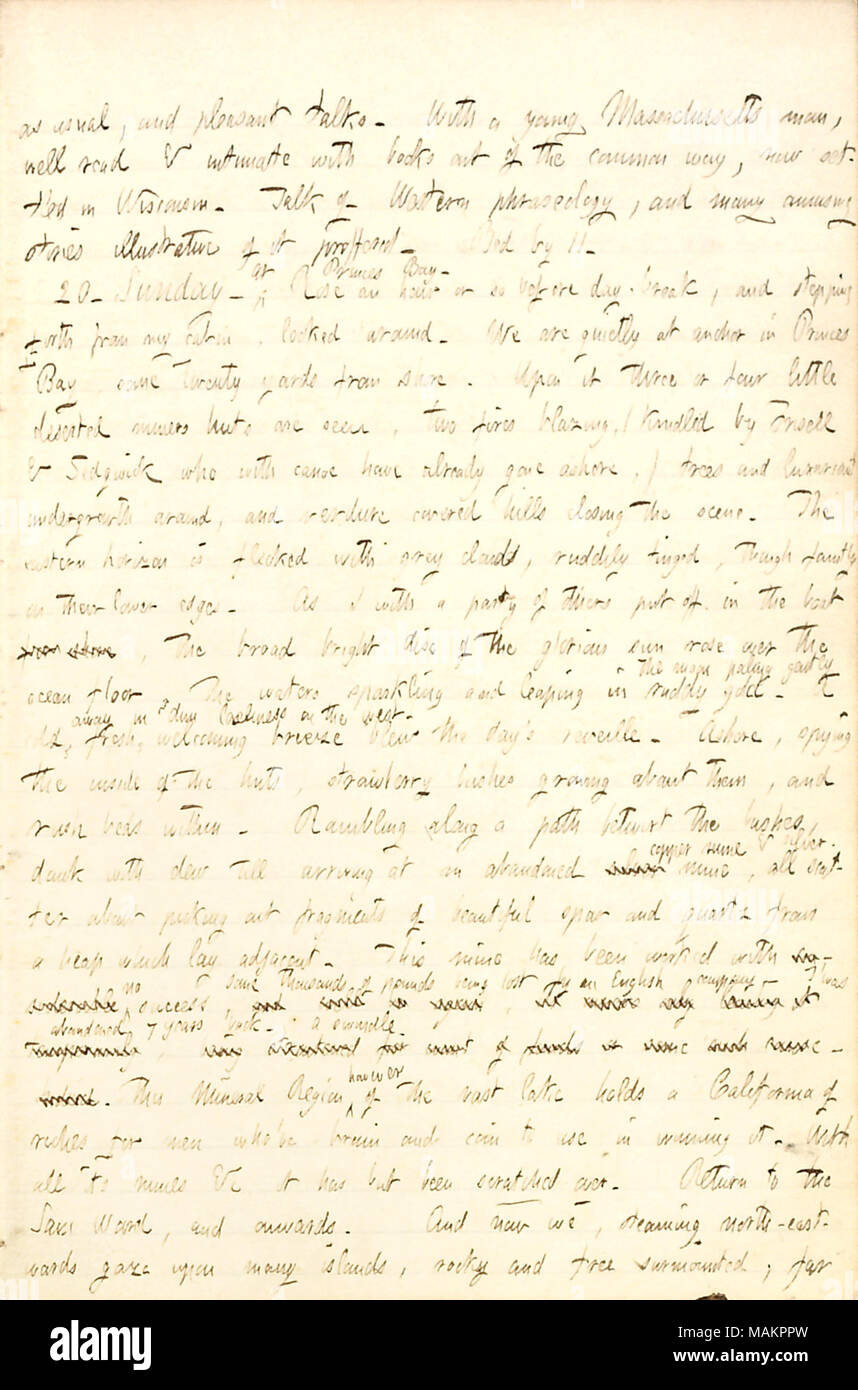 as usual, and pleasant talks. With a young Massachusetts man,
well read & intimate with books out of the common way, now set-
tled in Wisconsin. Talk of Western phraseology, and many amusing
stories illustrative of it proffered. Bed by 11.
at Princes Bay.
20. Sunday. Rose an hour or so before day-break, and stepping
forth from my cabin, looked around. We are quietly at anchor in Princes
Bay, some twenty yards from shore. Upon it three or four little
deserted miners huts are seen, two fires blazing, (kindled by Frisell
& Sedgwick who with canoe have already gone ashore,) trees and luxuriant
undergrowth around, and verdure covered hills closing the scene. The
eastern horizon is flecked with grey clouds, ruddily tinged, though faintly
on their lower edges. As I with a party of others put off in the boat
for shore, the broad bright disc of the glorious sun rose over the
the moon paling gently
ocean floor, the waters sparkling and leaping in ruddy gold. A
away in dim loveliness in the west.
cold, fresh, welcoming breeze blew the day's reveille. Ashore, spying
the inside of the huts, strawberry bushes growing about them, and
rush beds within. Rambling along a path betwixt the bushes,
copper mine & silver.
dank with dew till arriving at an abandoned silver mine, all scat-
ter about picking out fragments of beautiful spar and quartz from
a heap which lay adjacent. This mine has been worked with
no some thousands of pounds being lost by an English company. 'Twas
success,
abandoned 7 years back. a swindle.
however
The Mineral Region, of the vast lake holds a California of
riches for men who've brain and coin to use in winning it. With
all its mines &c it has but been scratched over. Return to the
Sam Ward, and onwards. And now we, steaming north-east-
wards gaze upon many islands, rocky and tree surmounted, far
alamy
Image ID: MAKPPW
www.alamy.com